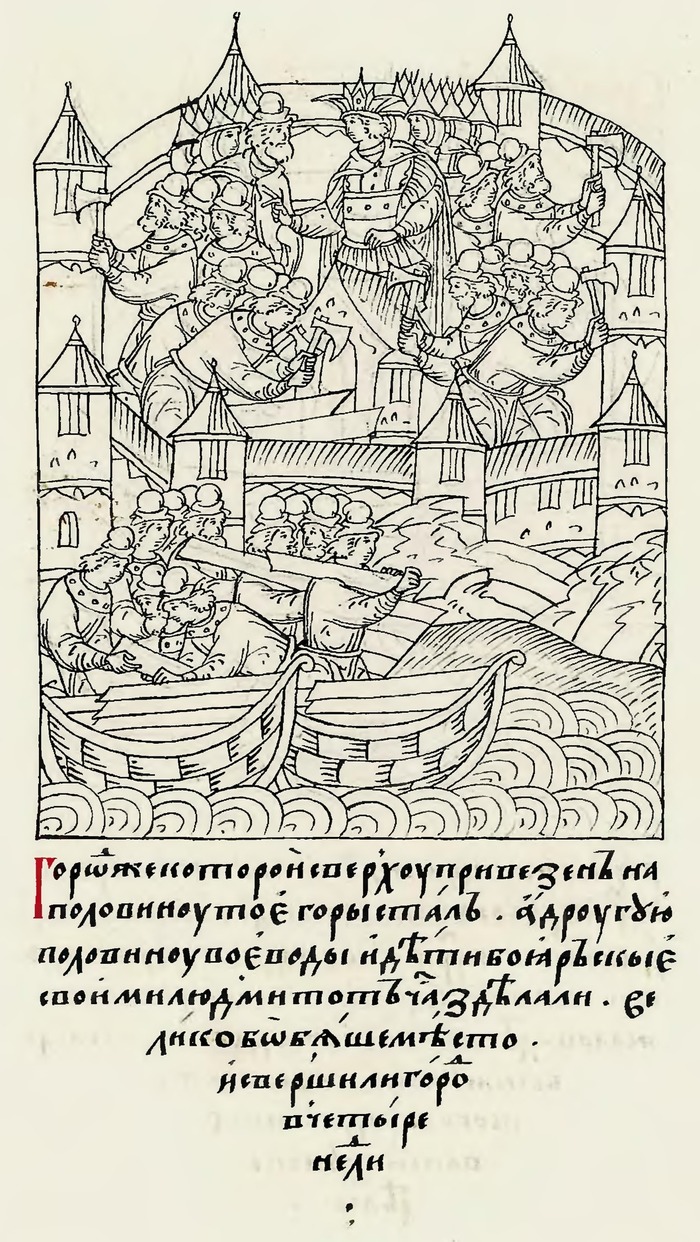 Горѡⷣжекоторойсверхоупривезенъ на
половиноутоѐ горыста́лъ . а҆дроугꙋю
половиноувоѐводы идѣ́тибоꙗ́рьскыѐ
своимилюдмитотъчⷭ҇а здѣлали . ве
ликобѡбѧ́шемѣ́сто .
и҆свершилиго́роⷣ
вчеты́ре
неⷣли